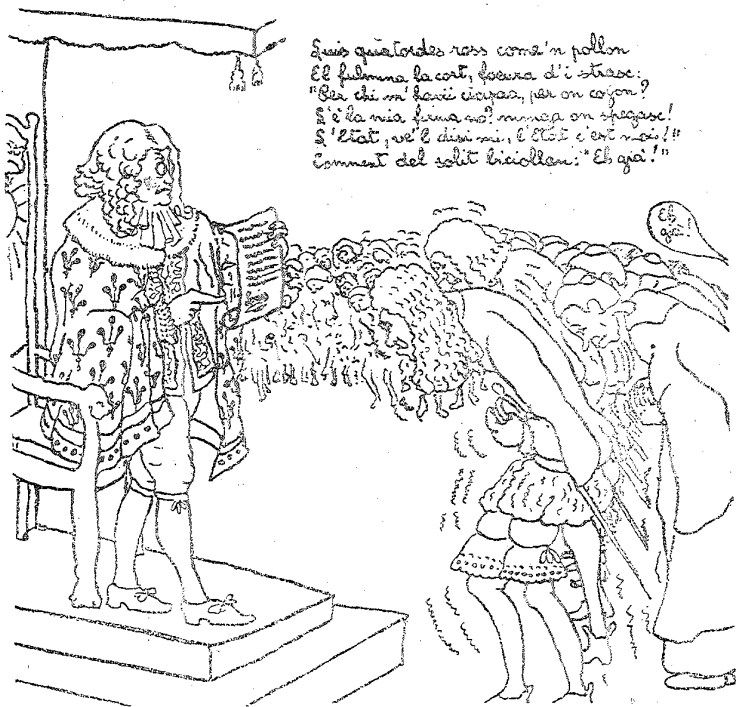 Luis quatordes ross come 'n pollon
El fulmina la cort, foeura d'i strasc:
"Per chi m'havii ciapaa, per on cojon?
L'è la mia firma no? minga on spegasc!
L'Etat, ve'l disi mi, l'Etat c'est moi!"
Comment del solit biciollan: "Eh già!"
Eh
già!